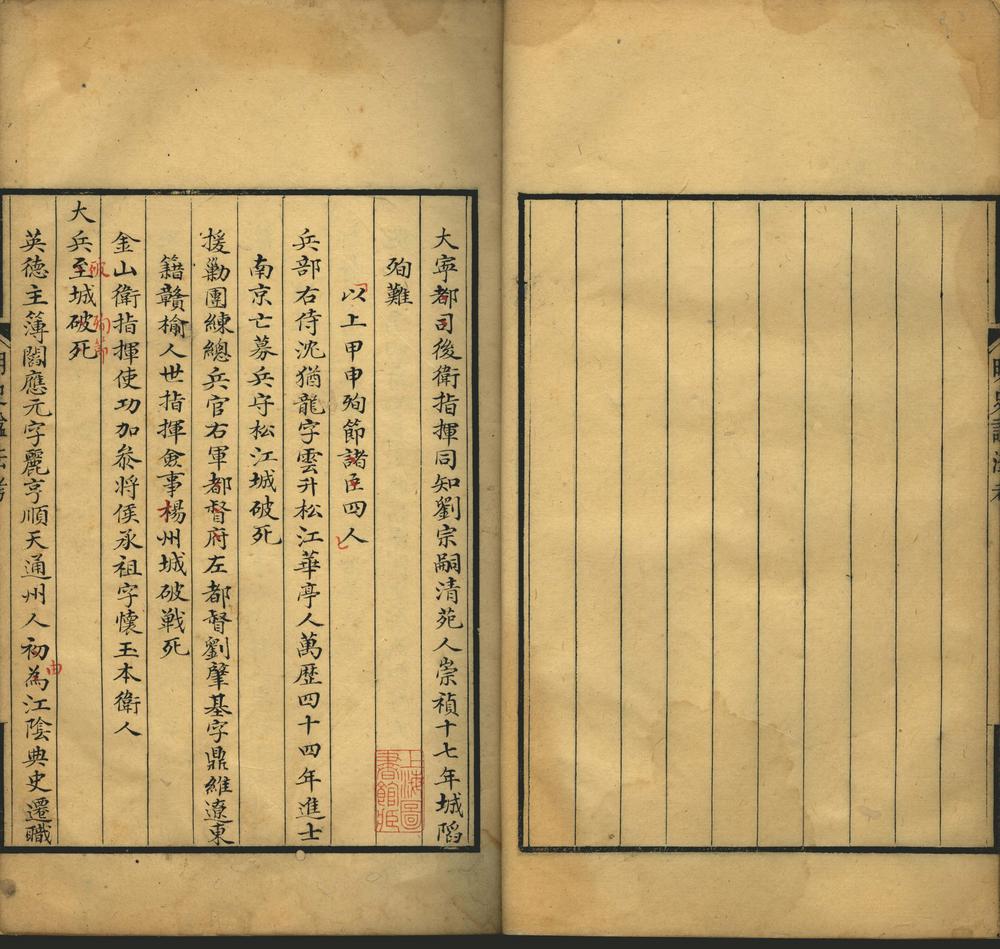 大寧都司後衛指揮同知劉宗嗣清苑人崇禎十七年城陷
殉難
以上甲申殉節諸臣四人
兵部右侍沈猶龍字雲升松江華亭人萬歷四十四年進士
南京亡募兵守松江城破死
援勦團練總兵官右軍都督府左都督劉肇基字鼎維遼東
籍贛榆人世指揮僉事楊州城破戰死
金山衛指揮使功加叅將侯承祖字懷玉本衛人
大兵至城破死
破
殉節
英德主簿閻應元字麗亨順天通州人初為江陰典史遷職
由
上海圖
書館